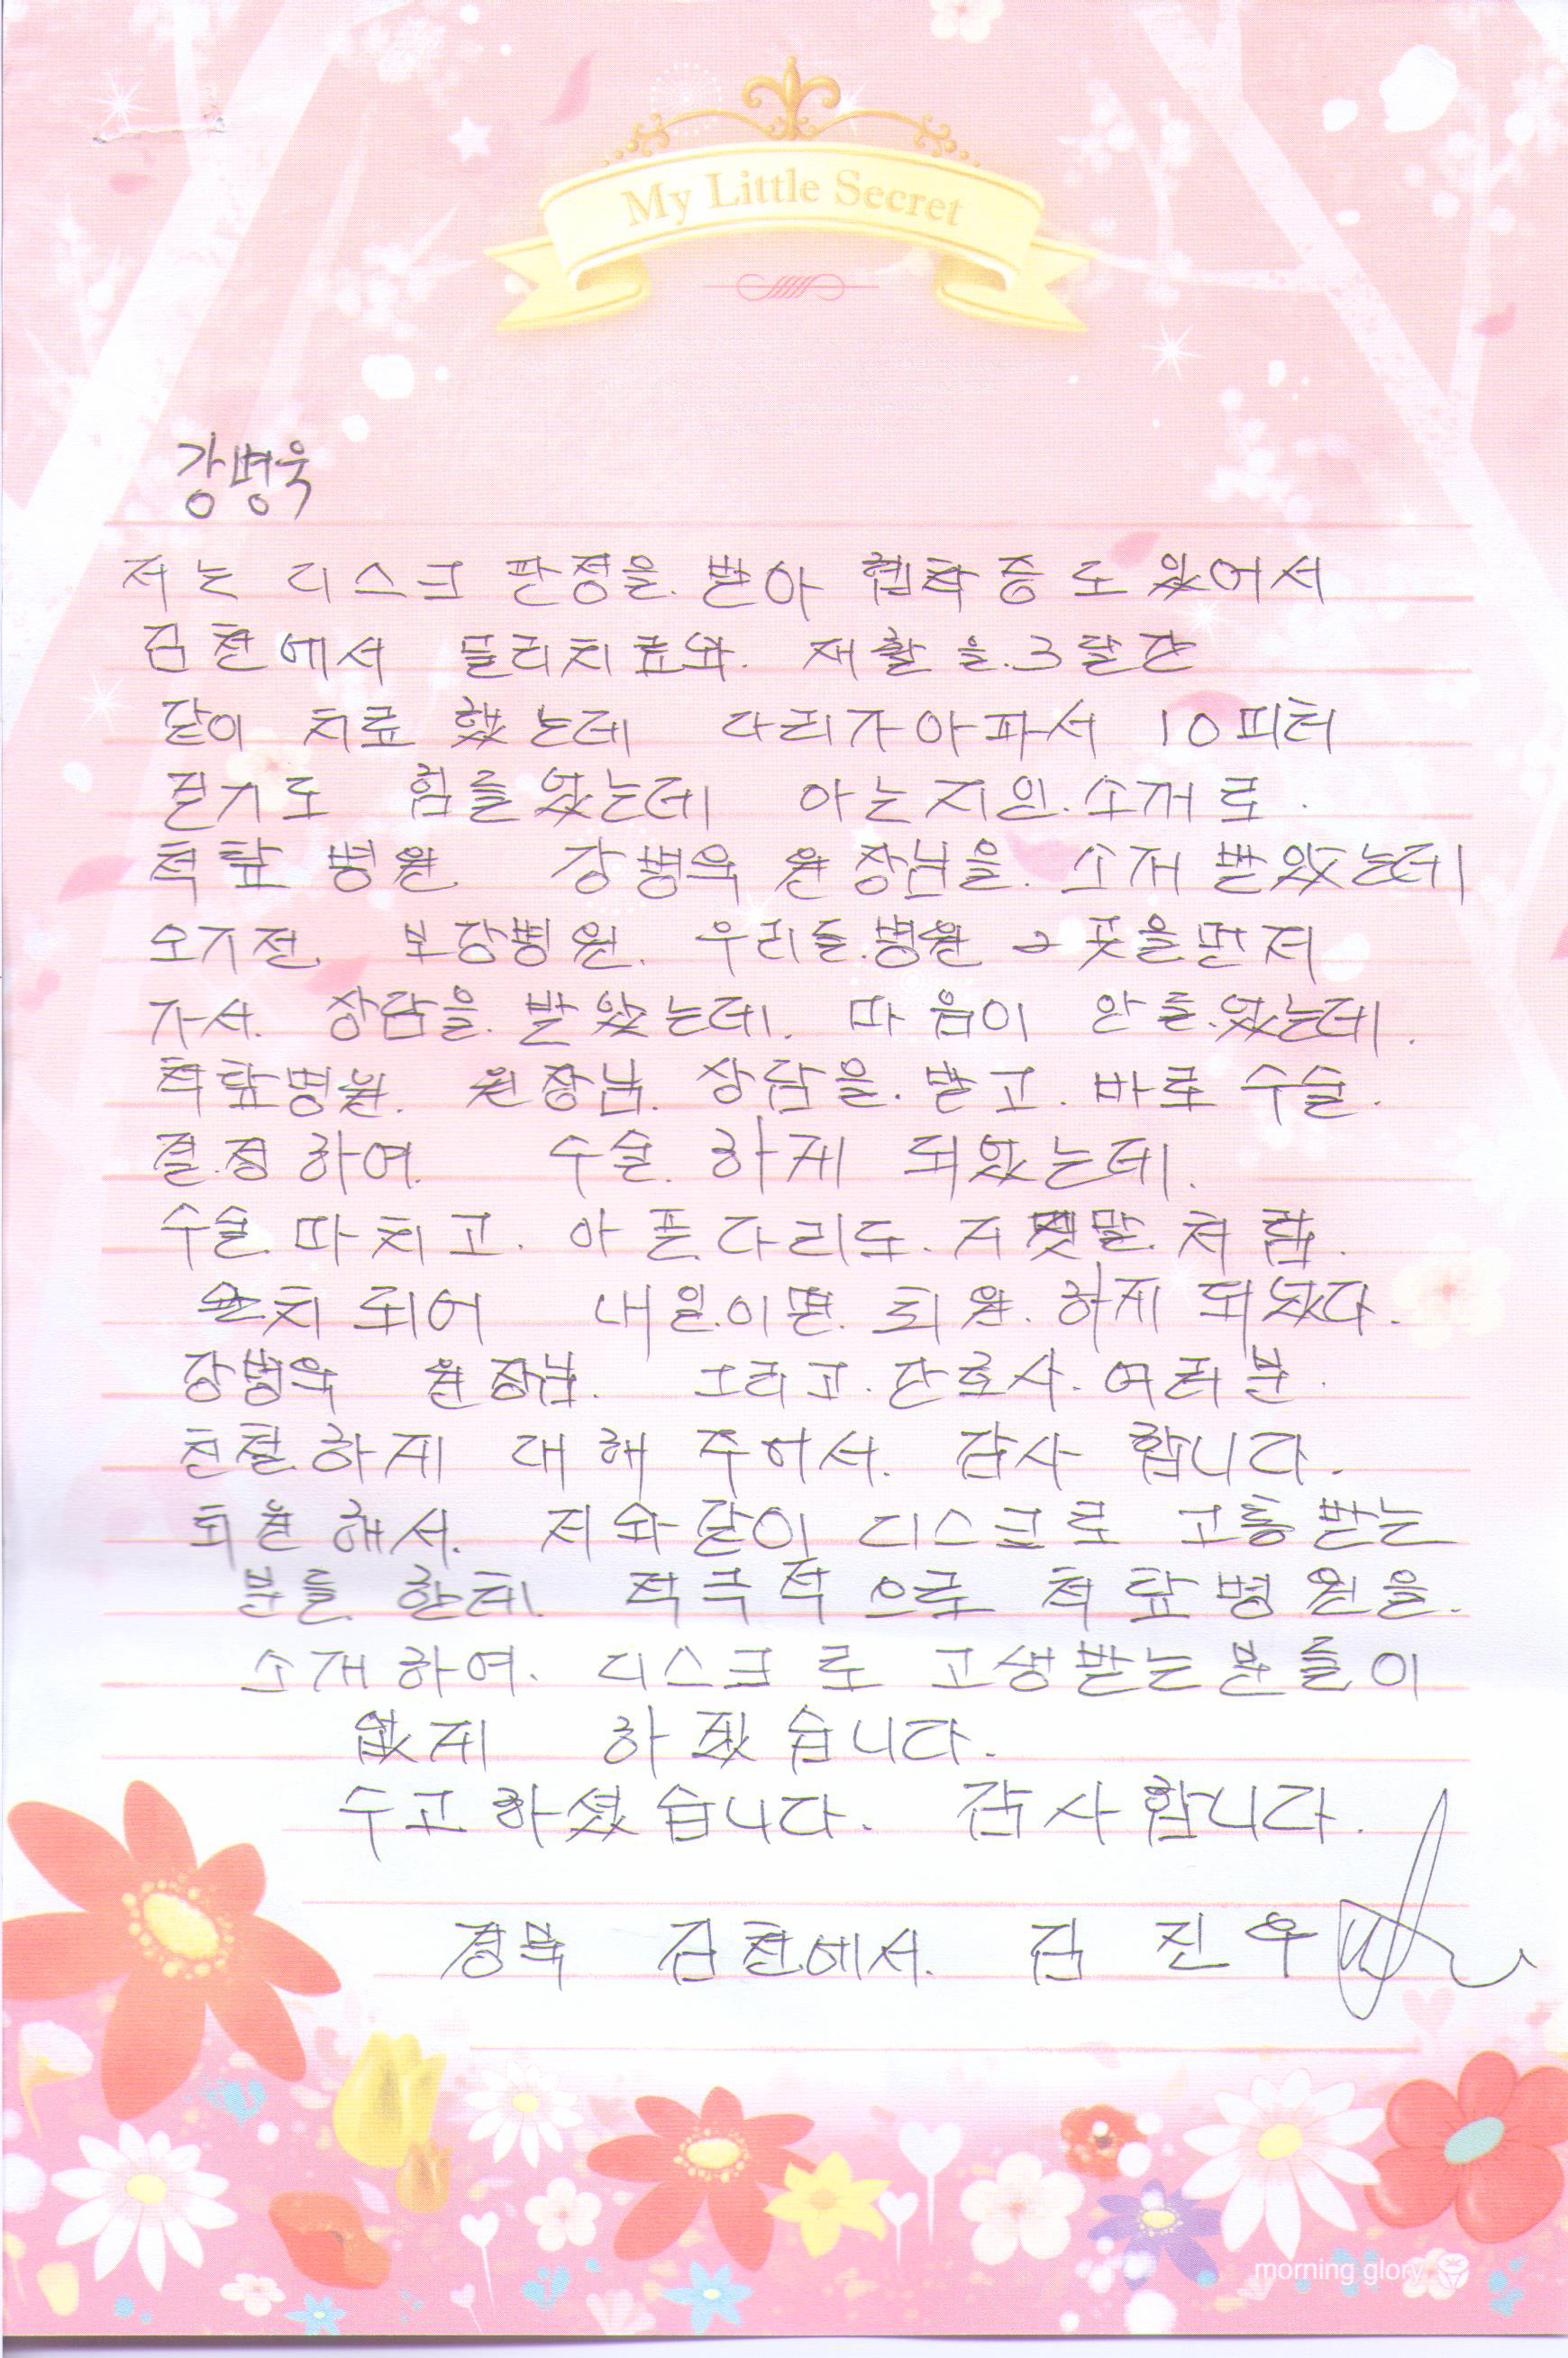 My Little Secret
강병욱
저는 디스크 판정을 받아 협착증도 있어서
김천에서 물리치료와. 재활을. 3달간
같이 치료했는데 다리가아파서 10미터
걷기도 힘들었는데 아는지인. 소개로.
척탑병원 강병욱 원장님을. 소개 받았는데
오기전. 보강병원. 우리들.병원 2곳을먼저
가서. 상담을. 받았는데. 마음이 안들.었는데.
척탑병원. 원장님. 상담을. 받고. 바로 수술.
결.정하여. 수술. 하게 되았는데.
수술. 마치고. 아픈.다리도. 거짓말.처럼.
완치되어 내일.이면. 퇴원. 하게되났다.
강병욱 원장님. 그리고. 간호사. 여러분.
친절.하게 대해 주어서. 감사합니다.
퇴원해서. 저와같이 디스크로 고통받는
분들.한테. 적극적으로 척탑병원을.
소개하여. 디스크로 고생받는분들이
없게 하겠습니다.
수고하셨습니다. 감사합니다.
경북 김천에서. 김진우
morning glory